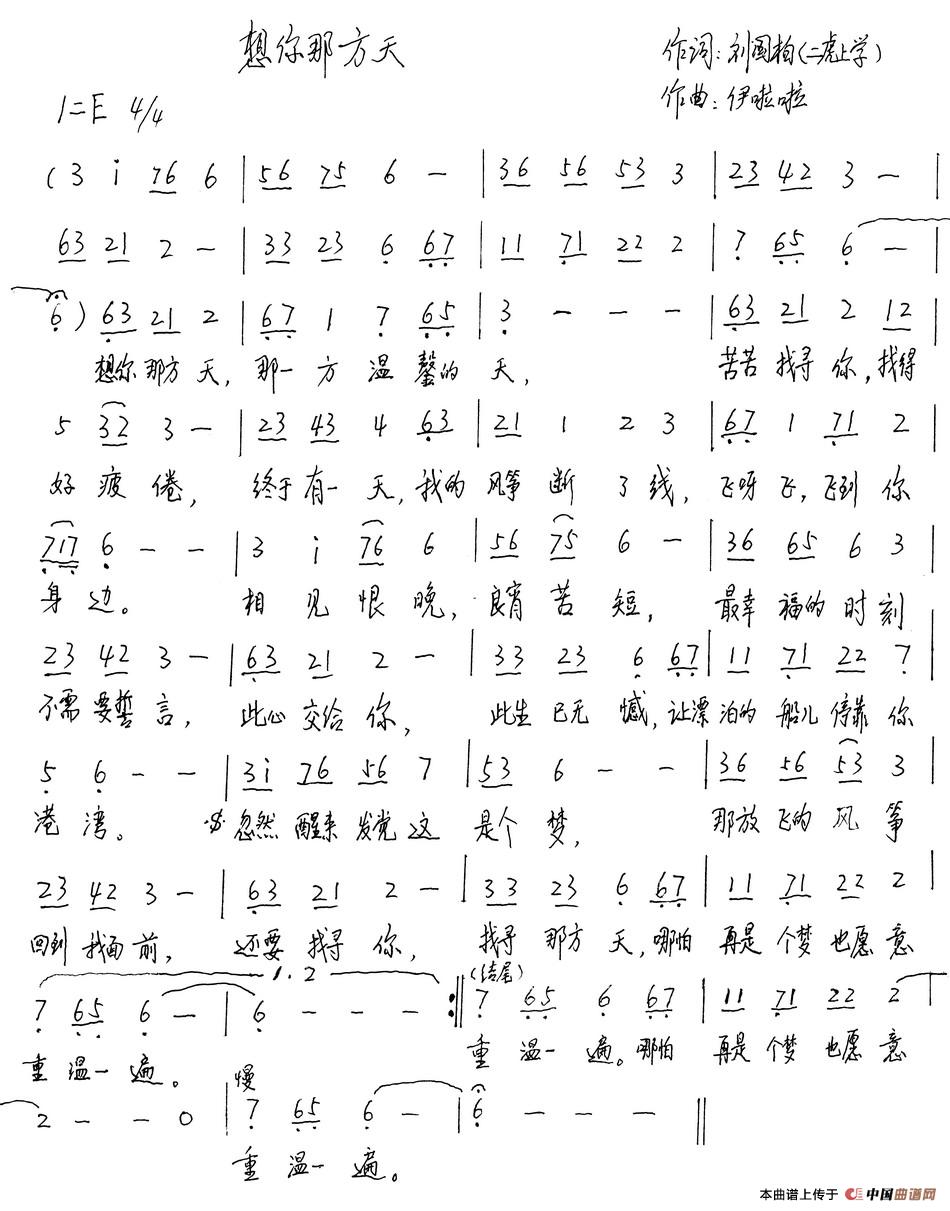 想你那方天
作词：刘国柏（二虎上学）
作曲：伊啦啦
1=E 4/4
(3 i 76 6 | 56 75 6 — | 36 56 53 3 | 23 42 3 — |
63 21 2 — | 33 23 6 67 | 11 71 22 2 | 7 65 6 — |
6) 63 21 2 | 67 1 7 65 | 3 — — — | 63 21 2 12 |
想你那方天，那一方温馨的天，苦苦找寻你，找得
5 32 3 — | 23 43 4 63 | 21 1 2 3 | 67 1 71 2 |
好疲倦，终于有一天，我的风筝断了线，飞呀飞，飞到你
717 6 — — | 3 i 76 6 | 56 75 6 — | 36 65 6 3 |
身边。相见恨晚，良宵苦短，最幸福的时刻
23 42 3 — | 63 21 2 — | 33 23 6 67 | 11 71 22 7 |
不需要誓言，此心交给你，此生已无憾，让漂泊的船儿停靠你
5 6 — — | 3i 76 56 7 | 53 6 — — | 36 56 53 3 |
港湾。𝄋忽然醒来发觉这是个梦，那放飞的风筝
23 42 3 — | 63 21 2 — | 33 23 6 67 | 11 71 22 2 |
回到我面前，还要找寻你，找寻那方天，哪怕再是个梦也愿意
1.2 (结尾)
7 65 6 — | 6 — — — :‖ 7 65 6 67 | 11 71 22 2 |
重温一遍。慢 重温一遍。哪怕再是个梦也愿意
2 — — 0 | 7 65 6 — | 6 — — — ‖
重温一遍。
本曲谱上传于 中国曲谱网